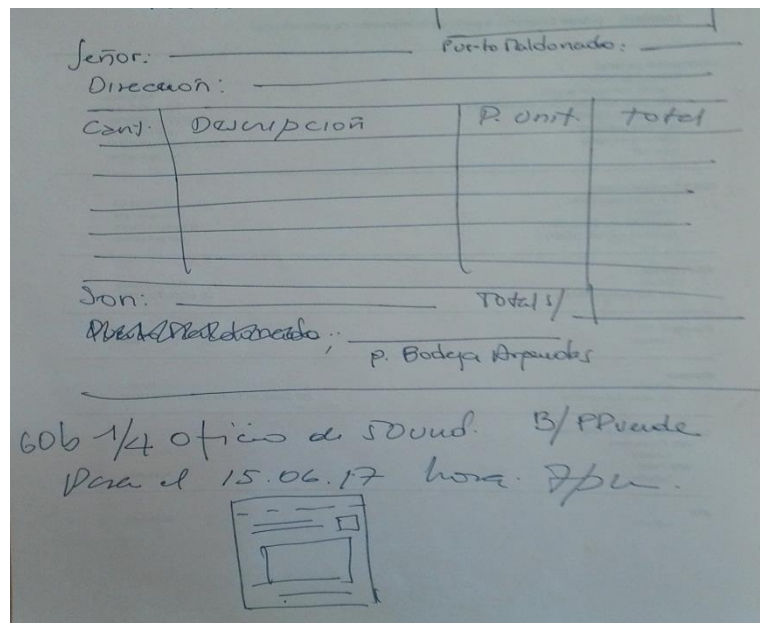 Señor: Puerto Maldonado:
Dirección:
Cant. Descripción P. Unit. Total
Son: Total s/
Puerto Maldonado;
p. Bodega
60b 1/4 oficio de 50 und. B/P Pverde
Para el 15.06.17 hora. 7pm.